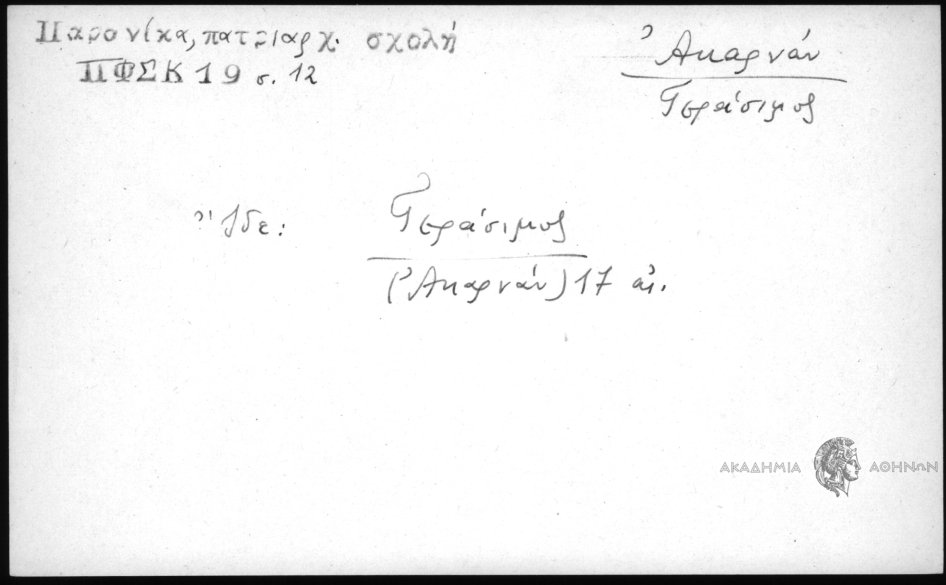 Παρονίκα, πατριαρχ. σχολή
ΠΦΣΚ 19 σ. 12
Ἀκαρνάν
Γεράσιμος
Ἴδε: Γεράσιμος
(Ἀκαρνάν) 17 αἰ.
ΑΚΑΔΗΜΙΑ ΑΘΗΝΩΝ